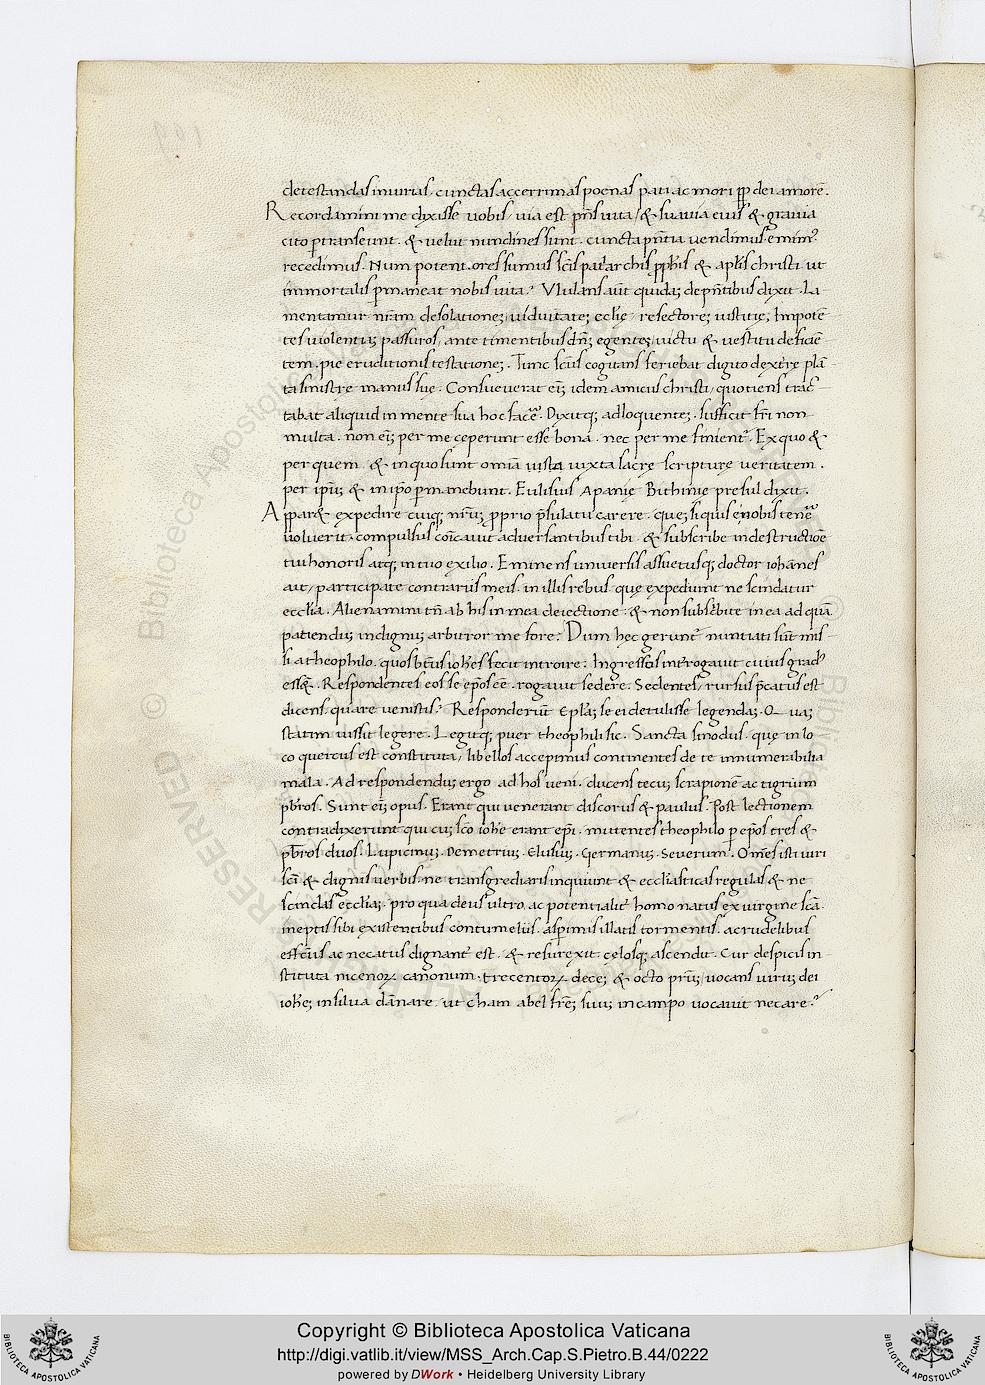 detestandas iniurias. cunctas accerrimas poenas pati ac mori ꝓp dei amorē.
Recordamini me dixisse uobis. uia est p̄ns uita / & suauia eius & grauia
cito ꝑtranseunt. & uelut nundines sunt. cuncta p̄ntia uendimus. emim᷒.
recedimus. Num potentiores sumus sc̄is patriarchis ꝓphis & apl̄is christi. ut
immortalis ꝑmaneat nobis uita? Vlulans aūt quidaꝫ de p̄ntibus dixit. La
mentamur nr̄am desolationeꝫ / uiduitateꝫ eccl̄ię / refectoreꝫ iustitię, Impotē
tes uiolentiaꝫ passuros / ante timentibus dn̄ꝫ egenteꝫ / uictu & uestitu deficiē
tem. pie eruditionis testationeꝫ. Tunc sc̄us cogitans feriebat digito dextrę plā
ta sinistre manus suę. Consueuerat eīꝫ idem amicus christi / quotiens trac
tabat aliquid in mente sua hoc facē. Dixitqꝫ ad loquenteꝫ. sufficit fr̄i non
multa. non eīꝫ per me ceperunt esse bona. nec per me finient᷑. Ex quo &
per quem. & in quo sunt omīa iusta iuxta sacrę scripturę ueritatem.
per ipꝫ & in ipō ꝑmanebunt. Eulisius Apanię Bithinię presul dixit.
Apparꝫ expedire cuiqꝫ nr̄uꝫ ꝓprio p̄sulatu carere. queꝫ siquis e nobis tenē
uoluerit. compulsus cōicauit aduersantibus tibi. & subscribe in destructiōe
tui honoris atqꝫ in tuo exilio. Eminens uniuersis assuetusqꝫ doctor iohānes
ait / participate contrariis meis. in illis rebus quę expediunt ne scindatur
eccl̄ia. Alienamini tn̄ ab his in mea deiectione: & non subscribite in ea ad quā
patienduꝫ indignuꝫ arbitror me fore. Dum hęc gerunt᷑ nuntiati sūt mis
si a theophilo. quos btūs ioh̄es fecit introire. Ingressos interrogauit cuius grad᷒
essꝫ. Respondentes eos se ep̄os eē. rogauit sedere. Sedentes / rursus p̄catus est
dicens. quare uenistis? Responderūt Epl̄aꝫ se ei detulisse legendaꝫ. Quaꝫ
statim iussit legere. Legitqꝫ puer theophili sic. Sancta sinodus. quę in lo
co quercus est constituta / libellos accepimus continentes de te innumerabilia
mala. Ad respondenduꝫ ergo ad hos ueni. ducens tecuꝫ scrapionē ac tigrium
pb̄ros. Sunt eīꝫ opus. Erant qui uenerant discorus & paulus. Post lectionem
contradixerunt qui cuꝫ sc̄o ioh̄e erant ep̄i. mittentes theophilo ꝑ ep̄os tres &
pb̄ros duos. Lupicinuꝫ. Demetriuꝫ. Elisiuꝫ. Germanuꝫ. Seuerum. Omēs isti uiri
sc̄i & dignis uerbis. ne transgrediaris inquiunt & eccl̄iasticas regulas & ne
scindas eccl̄iaꝫ. pro qua deus ultro ac potentialit᷑ homo natus ex uirgine sc̄a.
ineptis sibi existentibus contumeliis. asꝑrimis illatis tormentis. ac rudelibus
effc̄us ac necatus dignant᷑ est. & resurexit. cęlosqꝫ ascendit. Cur despicis in
stituta nicenoꝝ canonum. trecentoꝝ deceꝫ & octo pr̄uꝫ / uocans uiruꝫ dei
ioh̄eꝫ in silua dānare. ut Cham abel fr̄eꝫ suuꝫ in campo uocauit necare?
Copyright © Biblioteca Apostolica Vaticana
http://digi.vatlib.it/view/MSS_Arch.Cap.S.Pietro.B.44/0222
powered by DWork • Heidelberg University Library